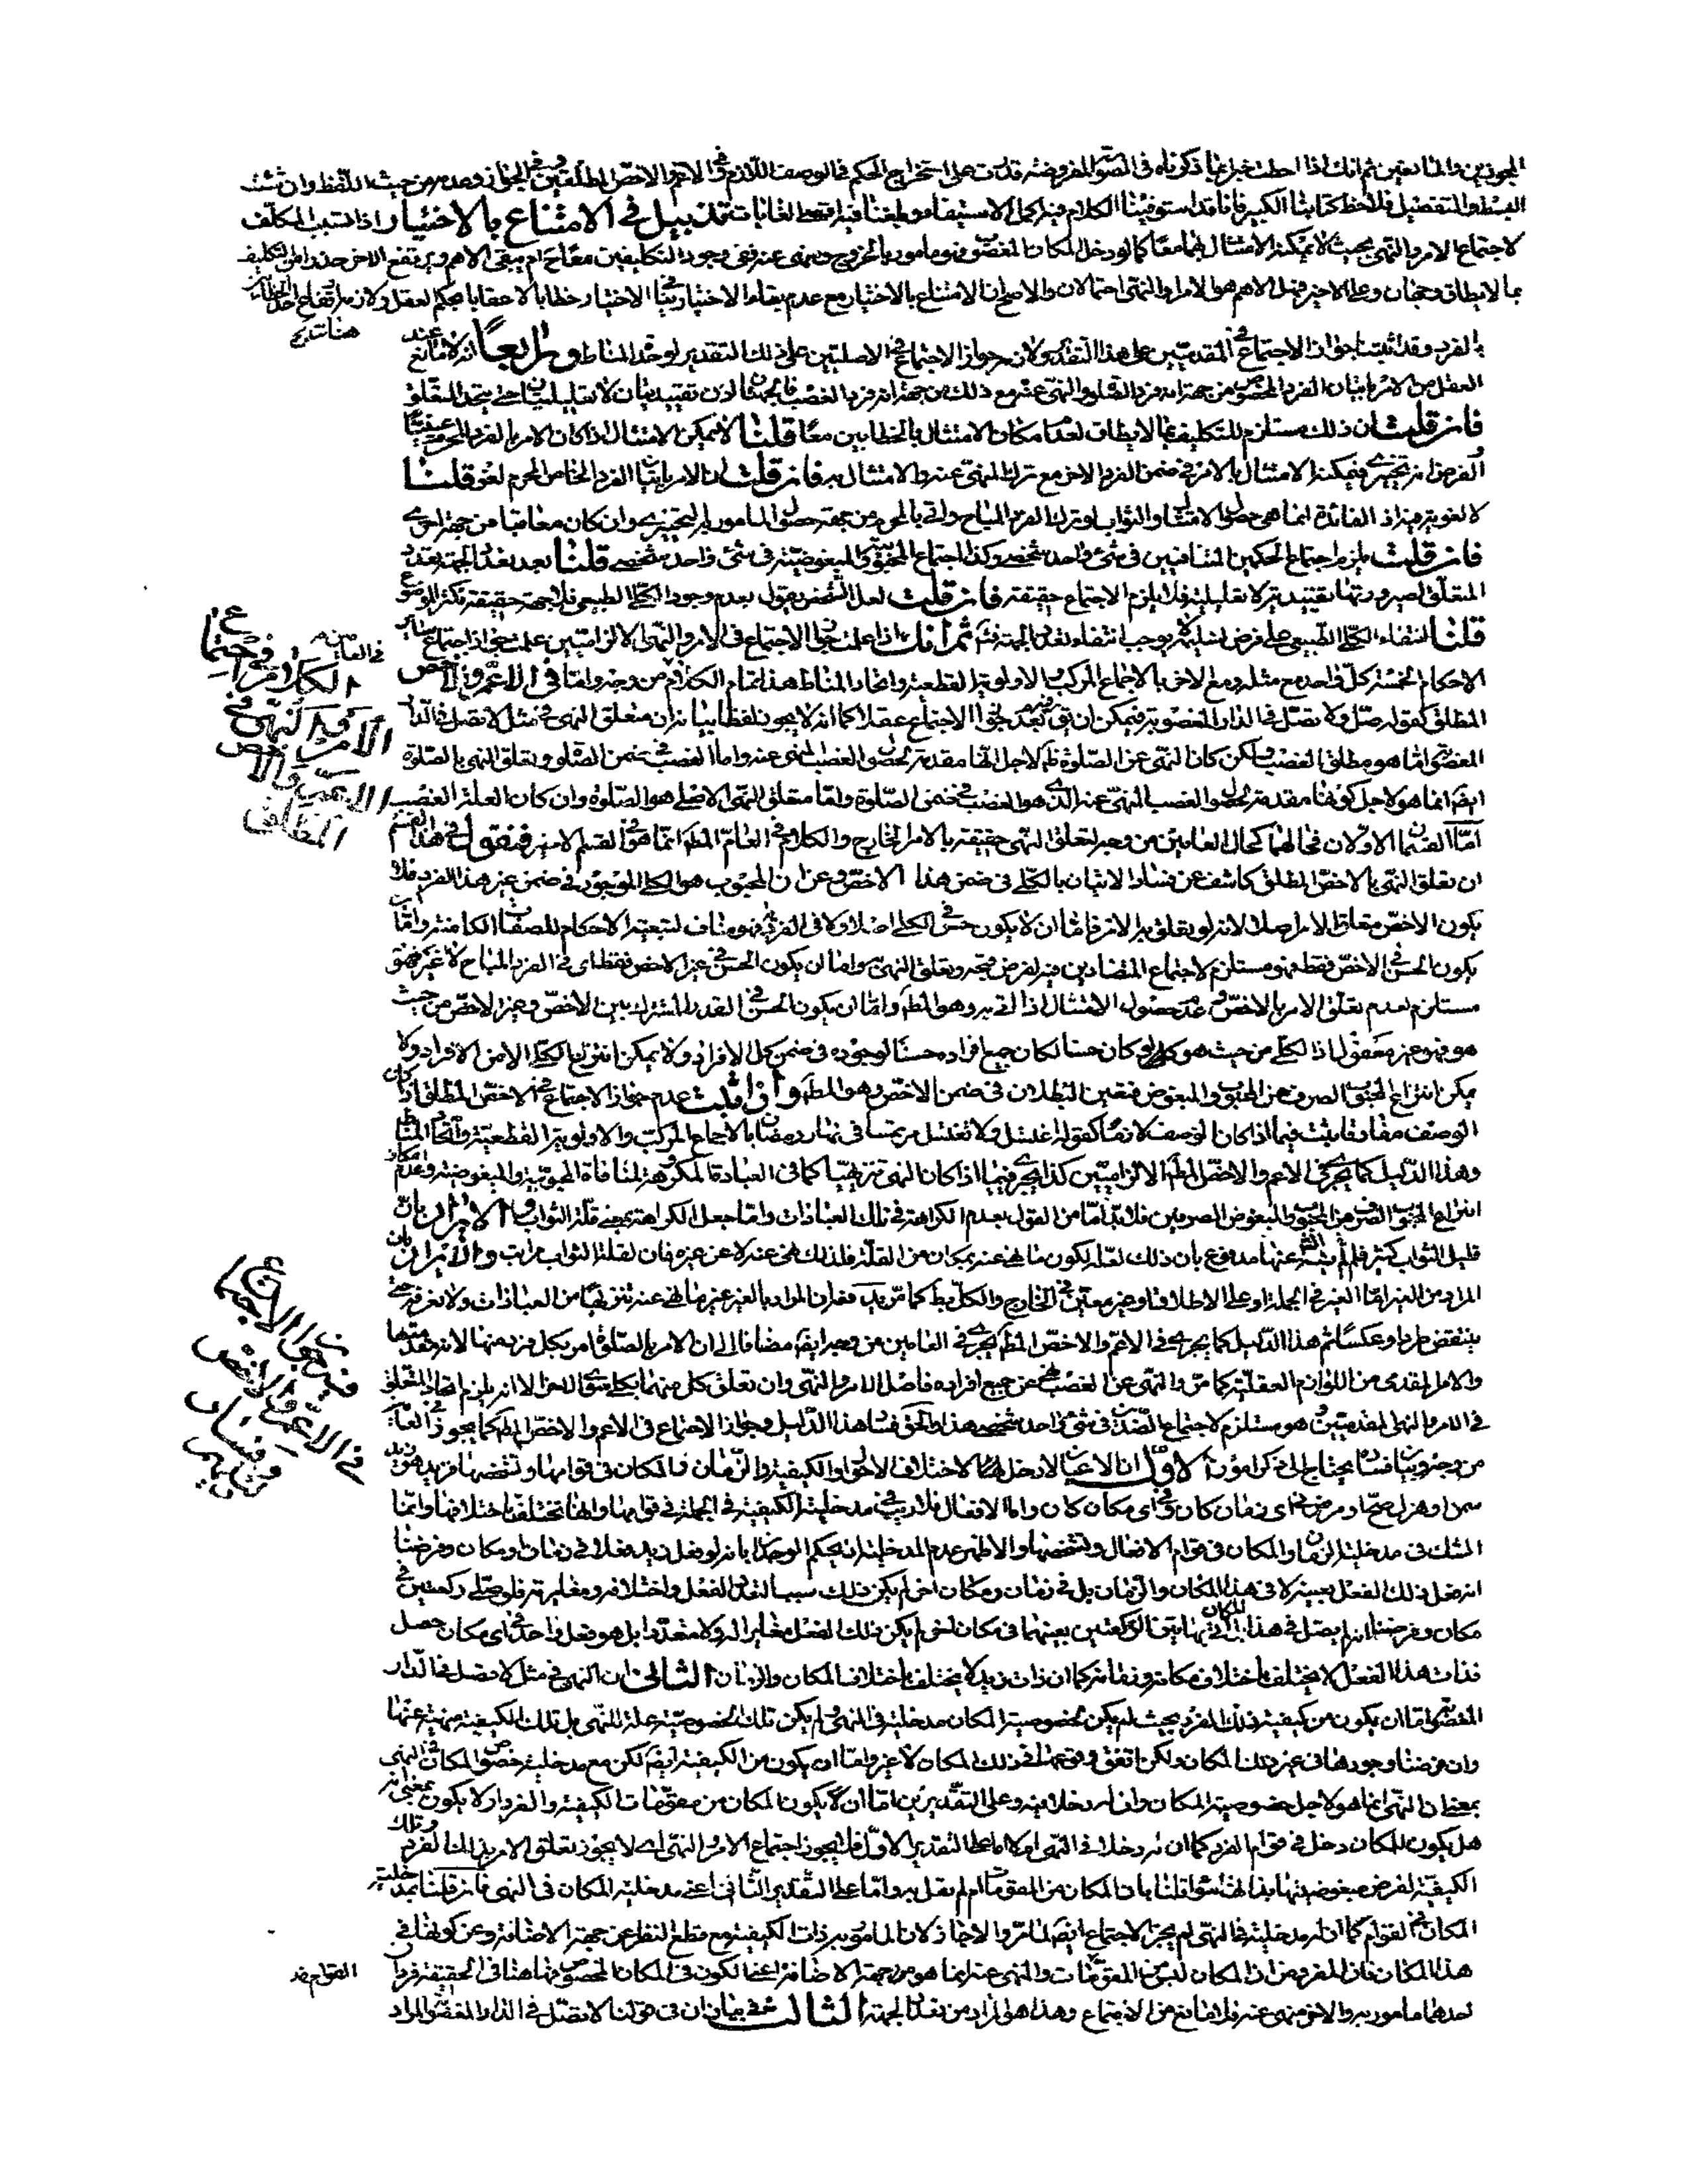 المجوزين والمانعين ثم انك اذا احطت خبرا بما ذكرناه فى الصور المفروضة قدرت على استخراج الحكم فى الوصف اللازم وفى الاعم والاخص المطلقين فى الجواز وعدمه من حيث اللفظ وان شئت
البسط والتفصيل فلاحظ كتابنا الكبير فانا قد استوفينا الكلام فيه كمال الاستيفاء وبلغنا فيه اقصى الغايات تذييل فى الامتناع بالاختيار اذا تسبب المكلف
لاجتماع الامر والنهى بحيث لا يمكنه الامتثال بهما معا كما لو دخل المكان المغصوب فهو مامور بالخروج ومنهى عنه ففى وجود التكليفين معا ح ام يبقى الاهم ويرتفع الاخر حذرا من التكليف
بما لا يطاق وجهان وعلى الاخير فهل الاهم هو الامر او النهى احتمالان والاصح ان الامتناع بالاختيار مع عدم بقاء الاختيار ينافى الاختيار خطابا لا عقابا بحكم العقل ولازمه ارتفاع احد الخطابين
هنا
بالفرد وقد ثبتنا جواز الاجتماع فى المقدميتين على هذا التقدير ولان جواز الاجتماع فى الاصليتين على ذلك التقدير لوحدة المناط ورابعا انه لا مانع عند
العقل من الامر باتيان الفرد المخصوص من جهة انه فرد الصلوة والنهى عنه مع ذلك من جهة انه فرد الغصب فالجهتان اذن تقييديتان لا تعليليتان حتى يتحد المتعلق
فان قلت ان ذلك مستلزم للتكليف بما لا يطاق لعدم امكان الامتثال بالخطابين معا قلنا لا يمكن الامتثال اذا كان الامر بالفرد المحرم عينيا
والفرض انه تخييرى فيمكنه الامتثال بالامر فى ضمن الفرد الاخر مع ترك المنهى عنه والامتثال به فان قلت ان الامر باتيان الفرد الخاص المحرم لغو قلنا
لا لغوية فيه اذ الفائدة انما هى حصول الامتثال والثواب لو ترك الفرد المباح واتى بالمحرم من جهة حصول المامور به التخييرى وان كان معاقبا من جهة اخرى
فان قلت يلزم اجتماع الحكمين المتنافيين فى شئ واحد شخصى وكذا اجتماع المحبوبية والمبغوضية فى شئ واحد شخصى قلنا بعد تعدد الجهة يتعدد
المتعلق لصيرورتها تقييدية لا تعليلية فلا يلزم الاجتماع حقيقة فان قلت لعل الشخص يقول بعدم وجود الكلى الطبيعى فلا جهة حقيقة تكثر الموضوع
قلنا انتفاء الكلى الطبيعى على فرض تسليمه لا يوجب انتفاء تعدد الجهة فتم ثم انك اذا علمت جواز الاجتماع فى الامر والنهى الالزاميتين علمت جواز اجتماع ساير
الاحكام الخمسة كل واحد مع مثله ومع الاخر بالاجماع المركب والاولوية القطعية واتحاد المناط هذا تمام الكلام من وجه واما فى الاعم والاخص
المطلق كقوله صل ولا تصل فى الدار المغصوبة فيمكن ان يق بعدم جواز الاجتماع عقلا كما انه لا يجوز لفظا بيانه ان متعلق النهى فى مثل لا تصل فى الدار
المغصوبة اما هو مطلق الغصب ولكن كان النهى عن الصلوة لاجل انها مقدمة لحصول الغصب المنهى عنه واما الغصب فى ضمن الصلوة وتعلق النهى بالصلوة
ايض انما هو لاجل كونها مقدمة لحصول الغصب المنهى عنه الذى هو الغصب فى ضمن الصلوة واما متعلق النهى الاصلى هو الصلوة وان كان العلة الغصب
اما القسمان الاولان فحالهما كحال العامين من وجه لتعلق النهى حقيقة بالامر الخارج والكلام فى العام المطلق انما هو القسم الاخير فنقول فى هذا القسم
ان تعلق النهى بالاخص المطلق كاشف عن فساد الاتيان بالكلى فى ضمن هذا الاخص وعن ان المحبوب هو الكلى الموجود فى ضمن غير هذا الفرد فلا
يكون الاخص متعلقا للامر اصلا لانه لو تعلق به الامر فاما ان لا يكون حسن فى الكلى اصلا ولا فى الفرد فهو مناف لتبعية الاحكام للصفات الكامنة واما
يكون الحسن فى الاخص فقط فهو مستلزم لاجتماع المتضادين فيه لفرض قبحه وتعلق النهى به واما ان يكون الحسن فى غير الاخص فقط اى فى الفرد المباح لا غير فهو
مستلزم لعدم تعلق الامر بالاخص وعدم حصول الامتثال اذا اتى به وهو المط واما ان يكون الحسن فى القدر المشترك بين الاخص وغير الاخص من حيث
هو فهو غير معقول اذ الكلى من حيث هو كلى لو كان حسنا لكان جميع افراده حسنا لوجوده فى ضمن كل الافراد ولا يمكن انتزاع الكلى الا من الافراد ولا
يمكن انتزاع المحبوب الصرف من المحبوب والمبغوض فتعين البطلان فى ضمن الاخص وهو المط واذا ثبت عدم جواز الاجتماع فى الاخص المطلق اذا كان
الوصف مفارقا يثبت فيما اذا كان الوصف لازما كقوله اغتسل ولا تغتسل مرتمسا فى نهار رمضان بالاجماع المركب والاولوية القطعية واتحاد المناط
وهذا الدليل كما يجرى فى الاعم والاخص المط الالزاميين كذا يجرى فيما اذا كان النهى تنزيهيا كما فى العبادة المكروهة لمنافاة المحبوبية والمبغوضية وعدم امكان
انتزاع المحبوب الصرف من المحبوب والمبغوض الصرفين فلا بد اما من القول بعدم الكراهة فى تلك العبادات واما جعل الكراهة بمعنى قلة الثواب والايراد بان
قليل الثواب كثير فلم لم ينه الشرع عنها مدفوع بان ذلك لعله لكون ما نهى عنه بمكان من القلة فلذلك نهى عنه لا عن غيره فان لقلة الثواب مراتب والايراد بان
المراد من الغير اما الغير فى الجملة او على الاطلاق او غير معين فى الخارج والكل بط كما مر يد فع ان المراد بالغير غير ما نهى عنه تنزيها من العبادات ولا نعرفه حتى
ينتقض طردا وعكسا ثم هذا الدليل كما يجرى فى الاعم والاخص المط يجرى فى العامين من وجه ايض مضافا الى ان الامر بالصلوة امر بكل فرد منها لانه مقدمتها
والامر المقدمى من اللوازم العقلية كما مر والنهى عن الغصب نهى عن جميع افراده فاصل الامر والنهى وان تعلق كل منهما بكلى سوى الاخر الا انه يلزم اتحاد المتعلق
فى الامر والنهى المقدميتين وهو مستلزم لاجتماع الضدين فى شئ واحد شخصى هذا والحق فساد هذا الدليل وجواز الاجتماع فى الاعم والاخص المط كما يجوز فى العام
من وجه وبيان فساده يحتاج الى ذكر امور الاول ان الاعيان لا دخل لها لاختلاف الاحوال والكيفية والزمان والمكان فى قوامها وتشخصها فزيد هو زيد
سمن او هزل صح او مرض فى اى زمان كان وفى اى مكان كان واما الافعال فلا ريب فى مدخلية الكيفية فى الجملة فى قوامها وانها تختلف باختلافها وانما
الشك فى مدخلية الزمان والمكان فى قوام الافعال وتشخصها والاظهر عدم المدخلية اذ يحكم الوجدان بانه لو فعل زيد فعلا فى زمان او مكان وفرضنا
انه فعل ذلك الفعل بعينه لا فى هذا المكان والزمان بل فى زمان ومكان اخر لم يكن ذلك سببا لتعدد الفعل واختلافه ومغايرته فلو صلى ركعتين فى
مكان وفرضنا انه لم يصل فى هذا المكان بل اتى بهاتين الركعتين بعينهما فى مكان اخر لم يكن ذلك الفعل مغايرا له ولا متعددا بل هو فعل واحد فى اى مكان حصل
فذات هذا الفعل لا يختلف باختلاف مكانه وزمانه كما ان ذات زيد لا يختلف باختلاف المكان والزمان الثانى ان النهى فى مثل لا تصل فى الدار
المغصوبة اما ان يكون من كيفية ذلك الفرد بحيث لم يكن لخصوصية المكان مدخلية فى النهى ولم يكن تلك الخصوصية علة للنهى بل تلك الكيفية منهية عنها
وان فرضنا وجودها فى غير ذلك المكان ولكن اتفق وقوعها فى ذلك المكان لا غير واما ان يكون من الكيفية ايض لكن مع مدخلية خصوص المكان فى النهى
بمعنى ان النهى انما هو لاجل خصوصية المكان وان له دخلا فيه وعلى التقديرين اما ان لا يكون المكان من مقومات الكيفية والفرد او لا يكون بمعنى انه
هل يكون للمكان دخل فى قوام الفرد كما ان له دخلا فى النهى ام لا اما على التقدير الاول فلا يجوز اجتماع الامر والنهى اى لا يجوز تعلق الامر بذلك الفرد وتلك
الكيفية لفرض مبغوضيتها بذاتها سواء قلنا بان المكان من المقومات ام لم نقل به واما على التقدير الثانى اعنى مدخلية المكان فى النهى فان قلنا بمدخلية
المكان فى القوام كما ان له مدخلية فى النهى لم يجز الاجتماع ايض لما مر والا جاز لان المامور به ذات الكيفية مع قطع النظر عن جهة الاضافة وعن كونها فى
هذا المكان فان المفروض ان المكان ليس من المقومات والمنهى عنه انما هو من جهة الاضافة اعنى الكون فى المكان المخصوص فهاهنا فى الحقيقة فردان
احدهما مامور به والاخر منهى عنه فلا مانع من الاجتماع وهذا هو المراد من تعدد الجهة الثالث فى بيان ان فى قولنا لا تصل فى الدار المغصوبة المراد
فى العامين من
الكلام فى اجتماع
الامر والنهى فى
الاعم والاخص
المطلق
فى جواز الاجتماع
فى الاعم والاخص